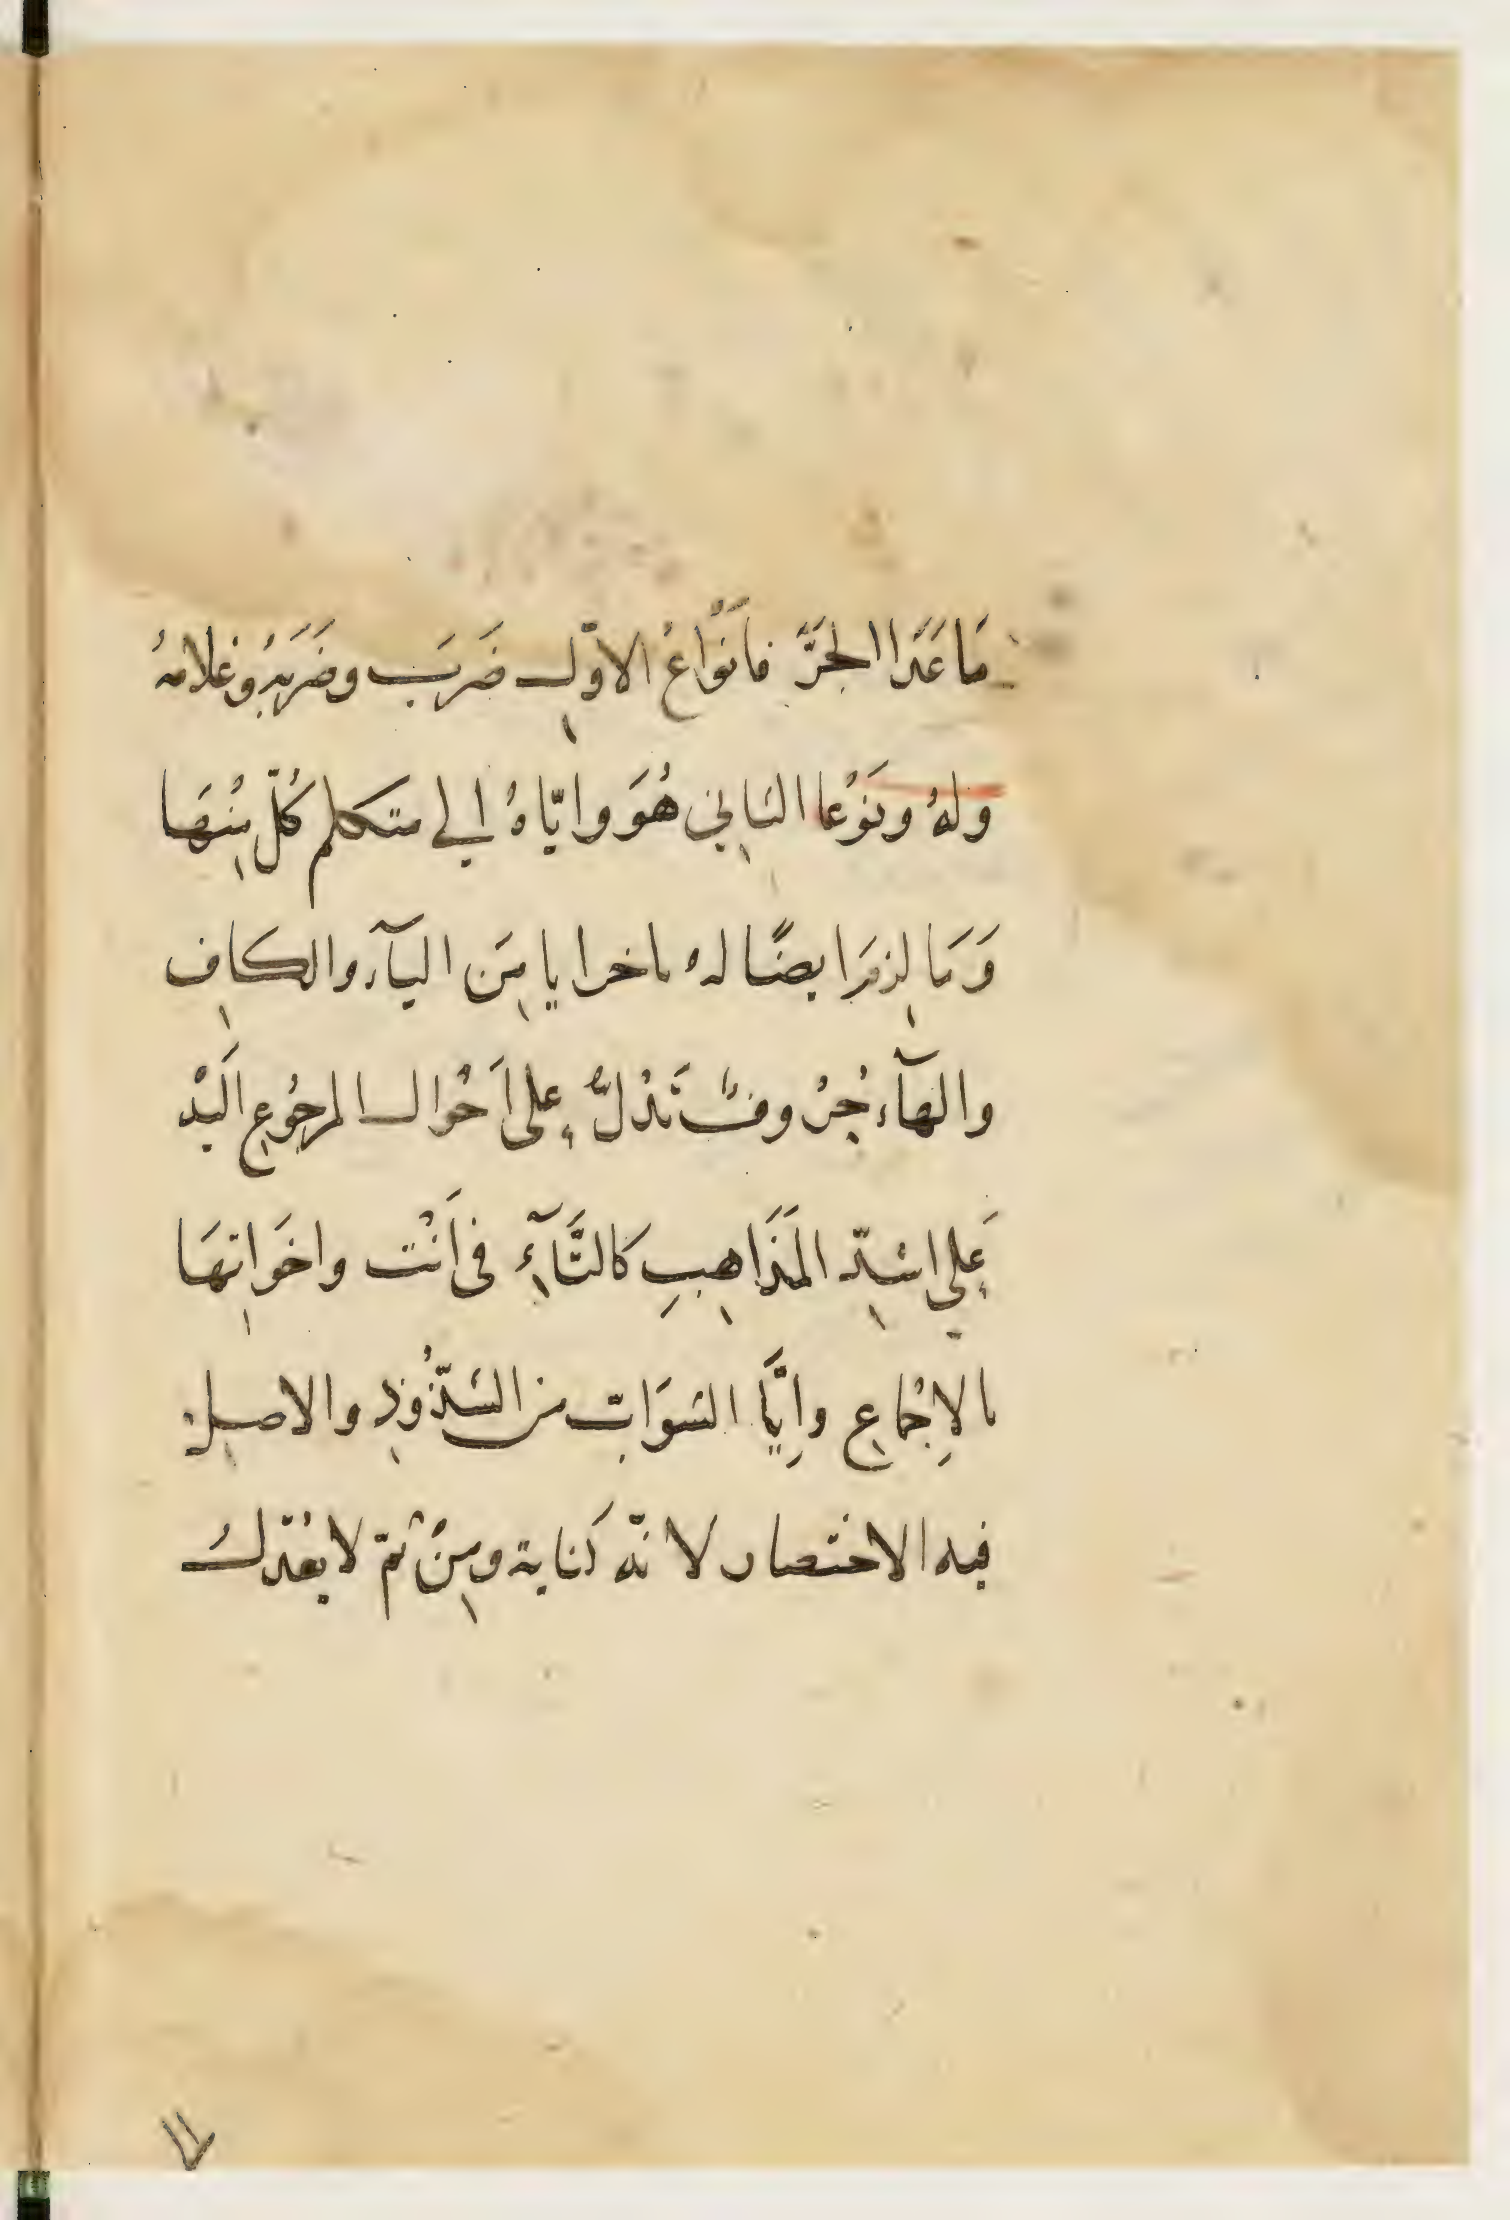 مَا عَدَا الجَرَّ فاَنْوَاعُ الاوّلِ ضَرَبَ وضَرَبَهُ وغلامهُ
ولهُ ونَوْعا الثاني هُوَ وايّاهُ الي متكلم كُلّ مِنْهَا
وَمَا لزمَ ايضًا لهُ باخر ايا مِنَ اليآء والكافِ
والهآء حُرُوفٌ تَدُلُّ على اَحْوال المرجُوعِ اليْه
عَلي اسَدِّ المَذَاهِبِ كالتَّآءِ في اَنْت واخَواتِهَا
بالاِجْماعِ واِيَّا السَوَابِّ من الشّذُوذِ والاصل
فيه الاختصار لانّه كناية ومِنْ ثمّ لا يعْدَلُ